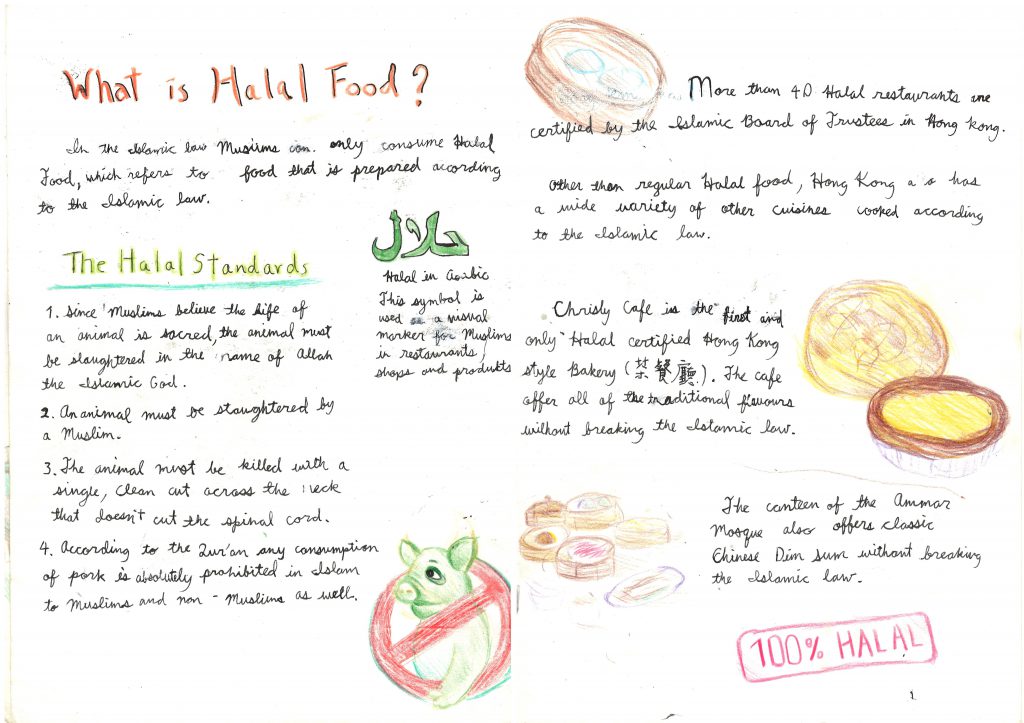 What is Halal Food?
In the Islamic law Muslims can. only consume Halal
Food, which refers to food that is prepared according
to the Islamic law.
The Halal Standards
1. Since Muslims believe the life of
an animal is sacred, the animal must
be slaughtered in the name of Allah
the Islamic God.
2. An animal must be slaughtered by
a Muslim.
3. The animal must be killed with a
single, clean cut across the neck
that doesn't cut the spinal cord.
4. According to the Qur'an any consumption
of pork is absolutely prohibited in Islam
to Muslims and non - Muslims as well.
حلال
Halal in Arabic
This symbol is
used as a visual
marker for Muslims
in restaurants,
shops and products
More than 40 Halal restaurants are
certified by the Islamic Board of Trustees in Hong Kong.
Other than regular Halal food, Hong Kong a s has
a wide variety of other cuisines cooked according
to the Islamic law.
Chrisly Cafe is the first and
only Halal certified Hong Kong
style Bakery (茶餐廳). The cafe
offer all of the traditional flavours
without breaking the Islamic law.
The canteen of the Ammar
Mosque also offers classic
Chinese Dim sum without breaking
the Islamic law.
100% HALAL
1